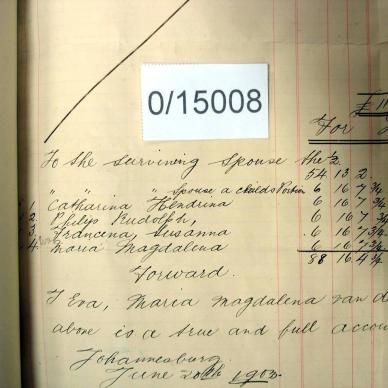 £11
0/15008
For
To the surviving spouse the ½.
54 13 2.
" " " Spouse a childs Portion 6 16 7 ¾
1. Catharina Hendrina 6 16 7 ¾
2. Philip Rudolph, 6 16 7 ¾
3. Francena, Susanna 6 16 7 ¾
4. Maria Magdalena 6 16 7 ¾
Forward. 88 16 4 ¼
I Eva, Maria Magdalena van d
above is a true and full accou
Johannesburg.
June 20th 1903.